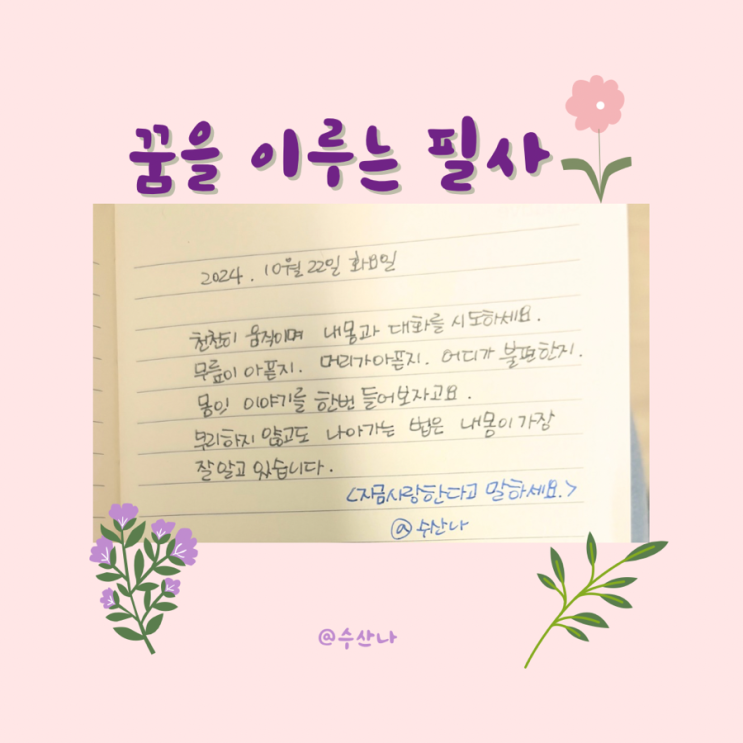 꿈을 이루는 필사
2024. 10월 22일 화요일
천천히 움직이며 내몸과 대화를 시도하세요.
무릎이 아픈지. 머리가아픈지. 어디가 불편한지.
몸의 이야기를 한번 들어보자고요.
무리하지 않고도 나아가는 법은 내몸이 가장
잘 알고 있습니다.
<지금사랑한다고 말하세요.>
@수산나
@수산나